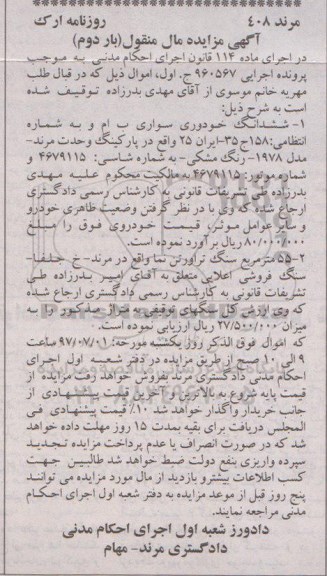 مرند ۴۰۸ روزنامه ارک
آگهی مزایده مال منقول(بار دوم)
در اجرای ماده ۱۱۴ قانون اجرای احکام مدنی به موجب
پرونده اجرایی ۹۶۰۵۶۷ ج. اول، اموال ذیل که در قبال طلب
مهریه خانم موسوی از آقای مهدی بدرزاده توقیف شده
است به شرح ذیل:
۱- ششدانگ خودروی سواری ب ام و به شماره
انتظامی:۱۵۸ج۳۵-ایران ۲۵ واقع در پارکینگ وحدت مرند-
مدل ۱۹۷۸-رنگ مشکی- به شماره شاسی: ۴۶۷۹۱۱۵ و
شماره موتور: ۴۶۷۹۱۱۵ به مالکیت محکوم علیه مهدی
بدرزاده طی تشریفات قانونی به کارشناس رسمی دادگستری
ارجاع شده که وی با در نظر گرفتن وضعیت ظاهری خودرو
و سایر عوامل موثر، قیمت خودروی فوق را مبلغ
۸۰/۰۰۰/۰۰۰ ریال برآورد نموده است.
۲-۵۵ مترمربع سنگ تراورتن نما واقع در مرند-خ جلفا-
سنگ فروشی اعلایی متعلق به آقای امیر بدرزاده طی
تشریفات قانونی به کارشناس رسمی دادگستری ارجاع شده
که وی ارزش کل سنگهای توقیفی به متراژ مذکور را به
میزان ۲۷/۵۰۰/۰۰۰ ریال ارزیابی نموده است.
که اموال فوق الذکر روز یکشنبه مورخه: ۹۷/۰۷/۰۱ ساعت
۹ الی ۱۰ صبح از طریق مزایده در دفتر شعبه اول اجرای
احکام مدنی دادگستری مرند بفروش خواهد رفت مزایده از
قیمت پایه شروع به بالاترین و آخرین قیمت پیشنهادی از
جانب خریدار واگذار خواهد شد ۱۰٪ قیمت پیشنهادی فی
المجلس دریافت برای بقیه بمدت ۱۵ روز مهلت داده خواهد
شد که در صورت انصراف یا عدم پرداخت مزایده تجدید
سپرده واریزی بنفع دولت ضبط خواهد شد طالبین جهت
کسب اطلاعات بیشتر و بازدید از مال مورد مزایده می توانند
پنج روز قبل از موعد مزایده به دفتر شعبه اول اجرای احکام
مدنی مراجعه نمایند.
دادورز شعبه اول اجرای احکام مدنی
دادگستری مرند- مهام